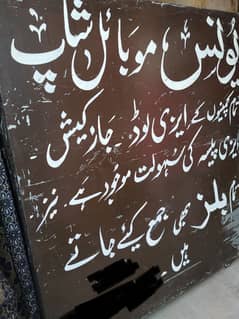 یونس موبائل شاپ
تمام کمپنیوں کے ایزی لوڈ۔ جاز کیش۔
ایزی پیسہ کی سہولت موجود ہے۔ نیز
تمام بلز بھی جمع کیئے جاتے
ہیں۔